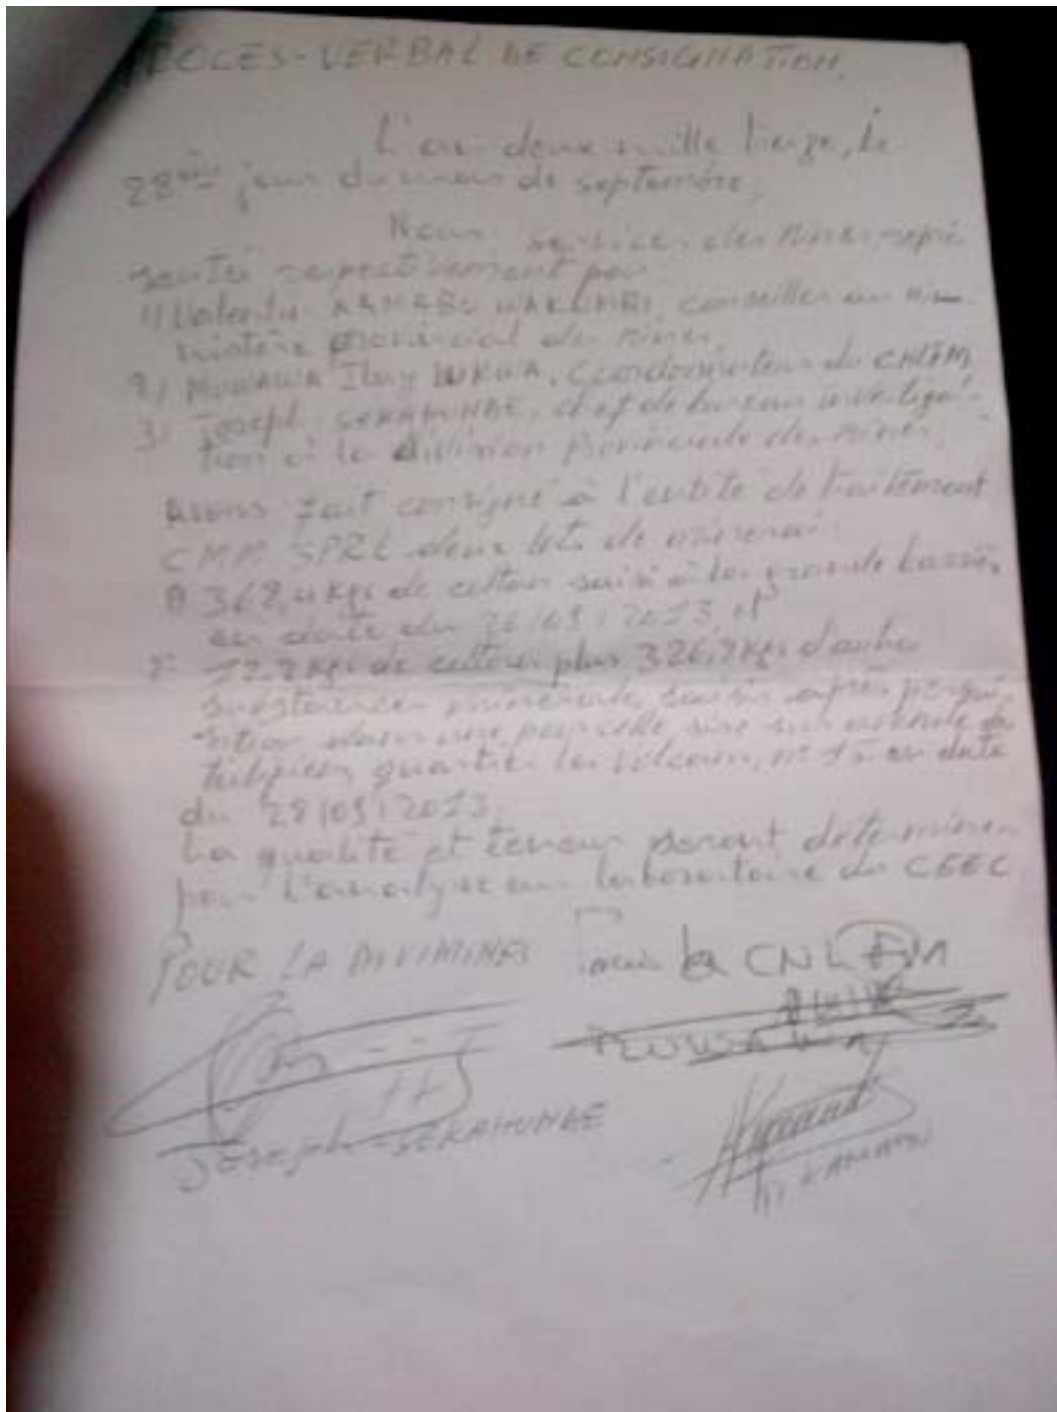 ROCES-VERBAL DE CONSIGNATION.
L'an deux mille treize, le
28ème jour du mois de septembre,
Nous services des Mines repré
sentés respectivement par
1) Valentin KAMABU, conseiller au Mi
nistère provincial des mines,
2), Coordonnateur de CNLFM
3) Joseph SEKAHUMBE, chef de bureau investiga-
tion à la division provinciale des mines,
Avons fait consigné à l'entité de traitement
CMM SPRL deux lots de minerai:
kgs de coltan saisi à la grande barrière
en date du 26/09/2013, et
kgs de coltan plus 326,2 kgs d'autre
substances minérales saisis après perqui-
sition dans une parcelle sise sur avenue
quartier les volcans, n° 15 en date
du 28/09/2013.
La qualité et teneur seront déterminer
par l'analyse au laboratoire du CEEC
POUR LA DIVIMINES Pour la CNLFM
Joseph SEKAHUMBE